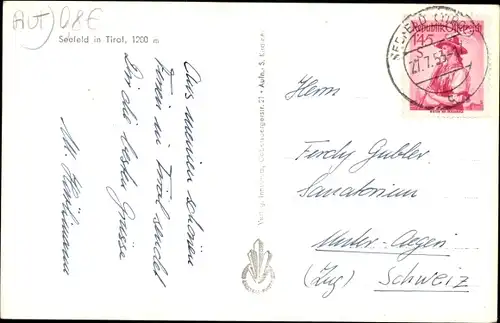 AUT) 08€
Seefeld in Tirol, 1200 m
Aus meinen schönen
Ferien in Tirol sendet
Dir die besten Grüsse
M.
Verlag
21 - Aufn. S.
SEEFELD (TIROL)
27.7.53
Republik Österreich
1.45
Herrn
Ferdy Gubler
Sanatorium
Unter-Aegeri
(Zug) Schweiz